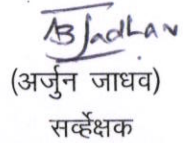 AB Jadhav
(अर्जुन जाधव)
सर्व्हेक्षक